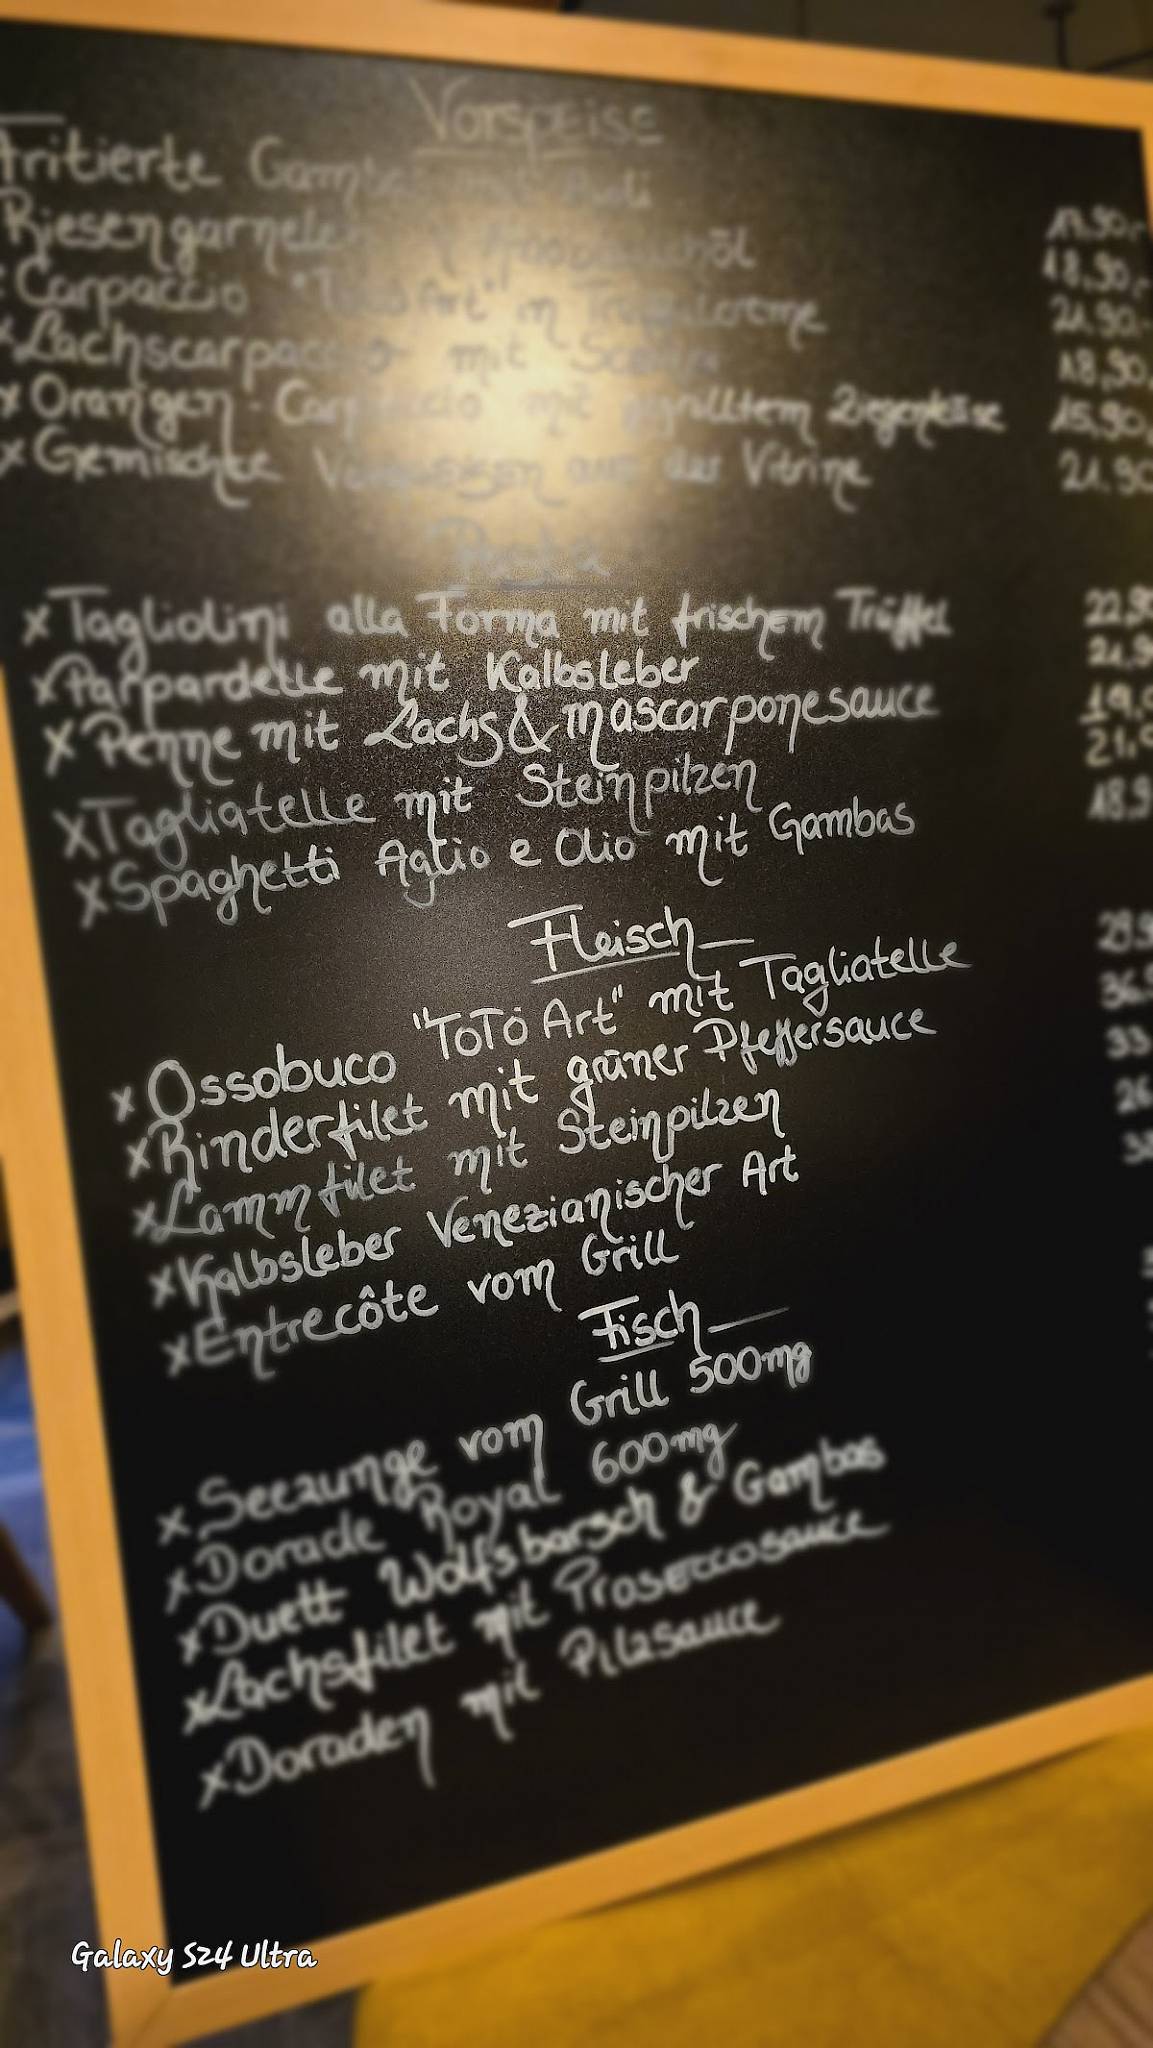 Vorspeise
Fritierte Gambas mit Aioli 17,90,-
Riesengarnelen 18,90,-
x Carpaccio "Art" in Trüffelcreme 21,90,-
x Lachscarpaccio mit 18,90,
x Orangen-Carpaccio mit gegrilltem Ziegenkäse 15,90,
x Gemischte Vorspeisen aus der Vitrine 21,90
Pasta
x Tagliolini alla Forma mit frischem Trüffel 22,90
x Parpardelle mit Kalbsleber 21,9
x Penne mit Lachs & Mascarponesauce 19,9
x Tagliatelle mit Steinpilzen 21,9
x Spaghetti Aglio e Olio mit Gambas 18,9
Fleisch
x Ossobuco "ToTo Art" mit Tagliatelle 29,9
x Rinderfilet mit grüner Pfeffersauce 36,9
x Lammfilet mit Steinpilzen 33
x Kalbsleber Venezianischer Art 26
x Entrecôte vom Grill
Fisch
x Seezunge vom Grill 500mg
x Dorade Royal 600mg
x Duett Wolfsbarsch & Gambas
x Lachsfilet mit Proseccosauce
x Doraden mit Pilzsauce
Galaxy S24 Ultra